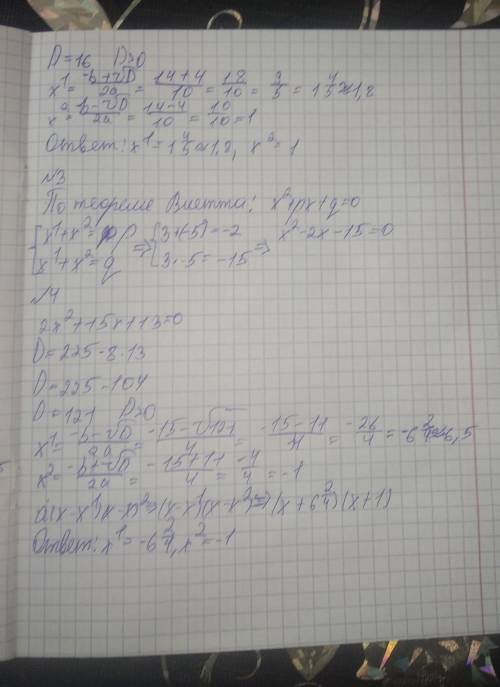 D=16 D>0
x¹= -b+√D/2a = 14+4/10 = 18/10 = 9/5 = 1 4/5 = 1,8
x²= -b-√D/2a = 14-4/10 = 10/10 = 1
Ответ: x¹=1 4/5 = 1,8, x²=1
N3
По теореме Виетта: x²+px+q=0
{x¹+x²= p ⇒ {3+(-5)=-2 ⇒ x²-2x-15=0
{x¹+x²=q {3·-5=-15
N4
2x²+15x+13=0
D=225-8·13
D=225-104
D=121 D>0
x¹= -b-√D/2a = -15-√121/4 = -15-11/4 = -26/4 = -6 2/4 = 6,5
x²= -b+√D/2a = -15+11/4 = -4/4 = -1
a(x-x¹)(x-x²)=(x-x¹)(x-x²)=(x+6 2/4)(x+1)
Ответ: x¹=-6 2/4, x²=-1